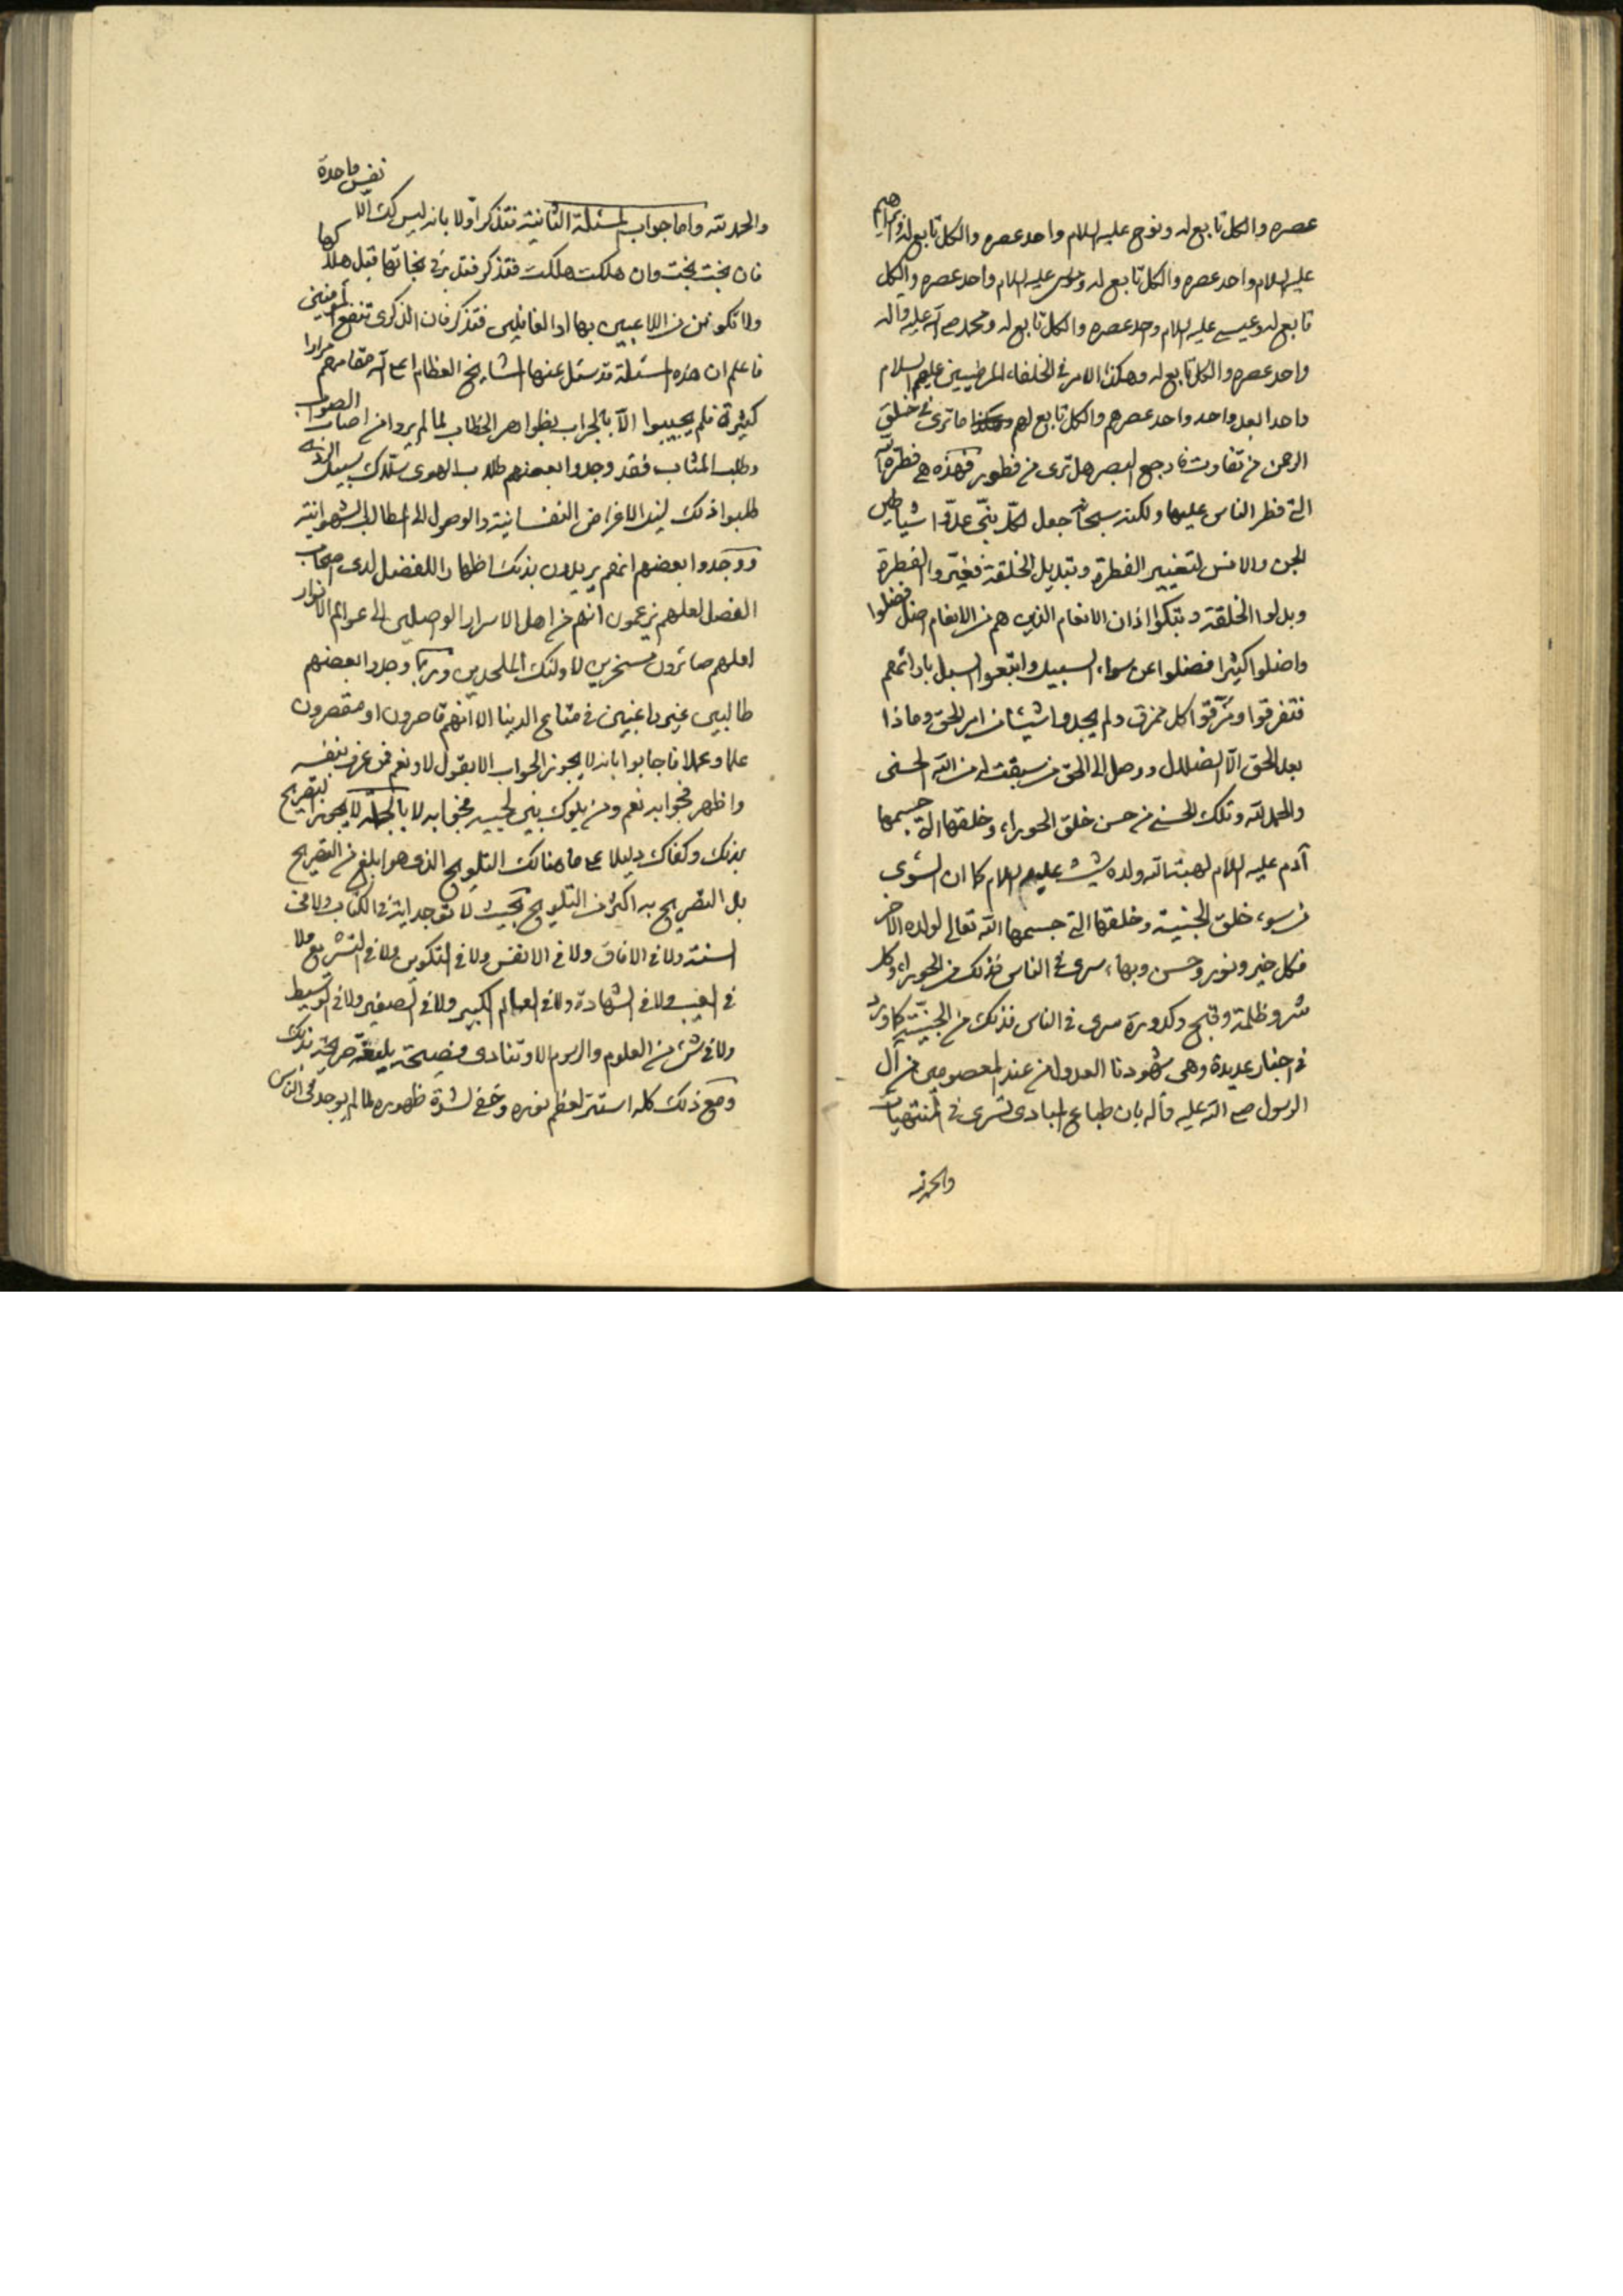 عصره والكل تابع له ونوح عليه السلام واحد عصره والكل تابع له وابراهيم
عليه السلام واحد عصره والكل تابع له وموسى عليه السلام واحد عصره والكل
تابع له وعيسى عليه السلام وحد عصره والكل تابع له ومحمد صلى الله عليه واله
واحد عصره والكل تابع له وهكذا الامر في الخلفاء المرضيين عليهم السلام
واحدا بعد واحد واحد عصرهم والكل تابع لهم وهكذا ما ترى في خلق
الرحمن من تفاوت فارجع البصر هل ترى من فطور فهذه هي فطرة الله
التي فطر الناس عليها ولكنه سبحانه جعل لكل نبي عدوا شياطين
الجن والانس لتغيير الفطرة وتبديل الخلقة فغيروا الفطرة
وبدلوا الخلقة وبتكوا اذان الانعام الذين هم من الانعام اضل فضلوا
واضلوا كثيرا فضلوا عن سواء السبيل واتبعوا السبل بارائهم
فتفرقوا ومزقوا كل ممزق ولم يجدوا شيئا من امر الحق وماذا
بعد الحق الا الضلال ووصل الى الحق من سبقت له من الله الحسنى
والحمد لله وتلك الحسنى من حسن خلق الحوراء وخلقها التي جسمها
آدم عليه السلام لهبة الله ولده شيث عليهم السلام كما ان السوءى
من سوء خلق الجنية وخلقها التي جسمها الله تعالى لولده الآخر
فكل خير ونور وحسن وبهاء سرى في الناس فذلك من الحوراء وكل
شر وظلمة وقبح وكدورة سرى في الناس فذلك من الجنية كما ورد
في اخبار عديدة وهي شهودنا العدول من عند المعصومين من آل
الرسول صلى الله عليه وآله بان طباع المبادي تسرى في المنتهيات
والحمد لله
نفس واحدة
والحمد لله واما جواب المسئلة الثانية فتذكر اولا بانه ليس لك الا
فان نجت نجت وان هلكت هلكت فتذكر فتدبر في نجاتها قبل هلاكها
ولا تكونن من اللاعبين بها او الغافلين فتذكر فان الذكرى تنفع المؤمنين
فاعلم ان هذه المسئلة قد سئل عنها المشايخ العظام اعلى الله مقامهم مرارا
كثيرة فلم يجيبوا الا بالجواب بظواهر الخطاب لما لم يروا من اصاب الصواب
وطلب المثاب فقد وجدوا بعضهم طلاب الهوى سلاك سبيل الردى
طلبوا ذلك لنيل الاغراض النفسانية والوصول الى المطالب الشهوانية
ووجدوا بعضهم انهم يريدون بذلك اظهارا للفضل لدى اصحاب
الفضل لعلهم يزعمون انهم من اهل الاسرار الواصلين الى عوالم الانوار
لعلهم صائرون مسخرين لاولئك الملحدين وربما وجدوا بعضهم
طالبين غير باغيين في متاع الدنيا الا انهم قاصرون او مقصرون
علما وعملا فاجابوا بانه لا يجوز الجواب الا بقول لا ونعم فمن عرف بنفسه
واظهر فجوابه نعم ومن يلوك بين لحييه فجوابه لا بالجملة لا يجوز التصريح
بذلك وكفاك دليلا على ما هنالك التلويح الذي هو ابلغ من التصريح
بل التصريح به اكثر من التلويح بحيث لا توجد اية في الكتاب ولا في
السنة ولا في الافاق ولا في الانفس ولا في التكوين ولا في التشريع ولا
في الغيب ولا في الشهادة ولا في العالم الكبير ولا في الصغير ولا في الوسيط
ولا في شئ من العلوم والرسوم الا وتنادى فصيحة بليغة صريحة بذلك
ومع ذلك كله استتر لعظم نوره وخفي لشدة ظهوره لما لم يوجد في الناس